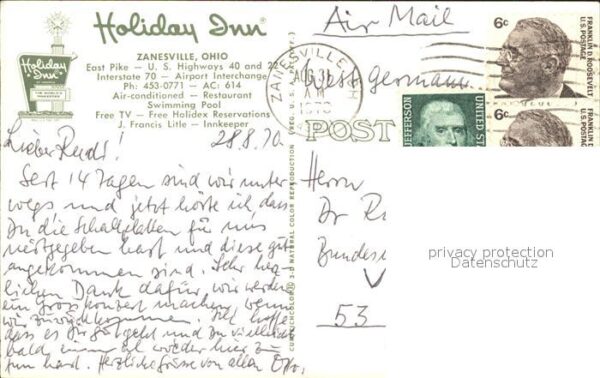 Holiday Inn®
ZANESVILLE, OHIO
East Pike — U. S. Highways 40 and 22
Interstate 70 — Airport Interchange
Ph: 453-0771 — AC: 614
Air-conditioned — Restaurant
Swimming Pool
Free TV — Free Holidex Reservations
J. Francis Litle — Innkeeper
Holiday Inn
28.8.70.
Lieber Rudi!
Seit 14 Tagen sind wir unter
wegs und jetzt hörte ich dass
Du die Schallplatten für uns
mitgegeben hast und diese gut
angekommen sind. Sehr herz
lichen Dank dafür, wir werden
ein Grosskonzert machen wenn
wir zurückkommen. Ich hoffe
dass es Dir gut geht und Du vielleicht
bald einmal wieder hier zu
tun hast. Herzliche Grüsse von allen
CURTEICHCOLOR® 3-D NATURAL COLOR REPRODUCTION
Air Mail
West Germany
ZANESVILLE, OH
AUG 31
AM
1970
POST
6c
FRANKLIN D. ROOSEVELT
U.S. POSTAGE
JEFFERSON
UNITED
6c
FRANKLIN D
U.S. POS
Herrn
Dr
Bundes
53
privacy protection
Datenschutz